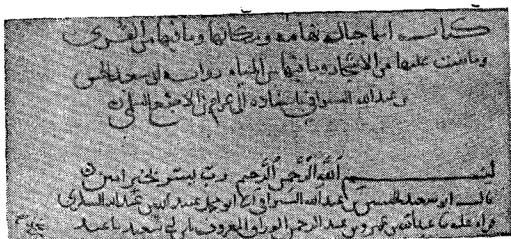 كتاب اسما جبال تهامه وسكانها وما فيها من القرى
وما ينبت عليها من الاشجار وما فيها من المياه روايه ابى سعيد الحسن
بن عبد الله السيرافى باسناده الى عرام بن الاصبغ السلمى
بسم الله الرحمن الرحيم رب يسر بخير
ابو سعيد الحسن بن عبد الله السيرافى ابو محمد عبيد الله بن السكرى
عليه بن عمرو بن عبد الرحمن الوراق المعروف بابن ابى سعيد